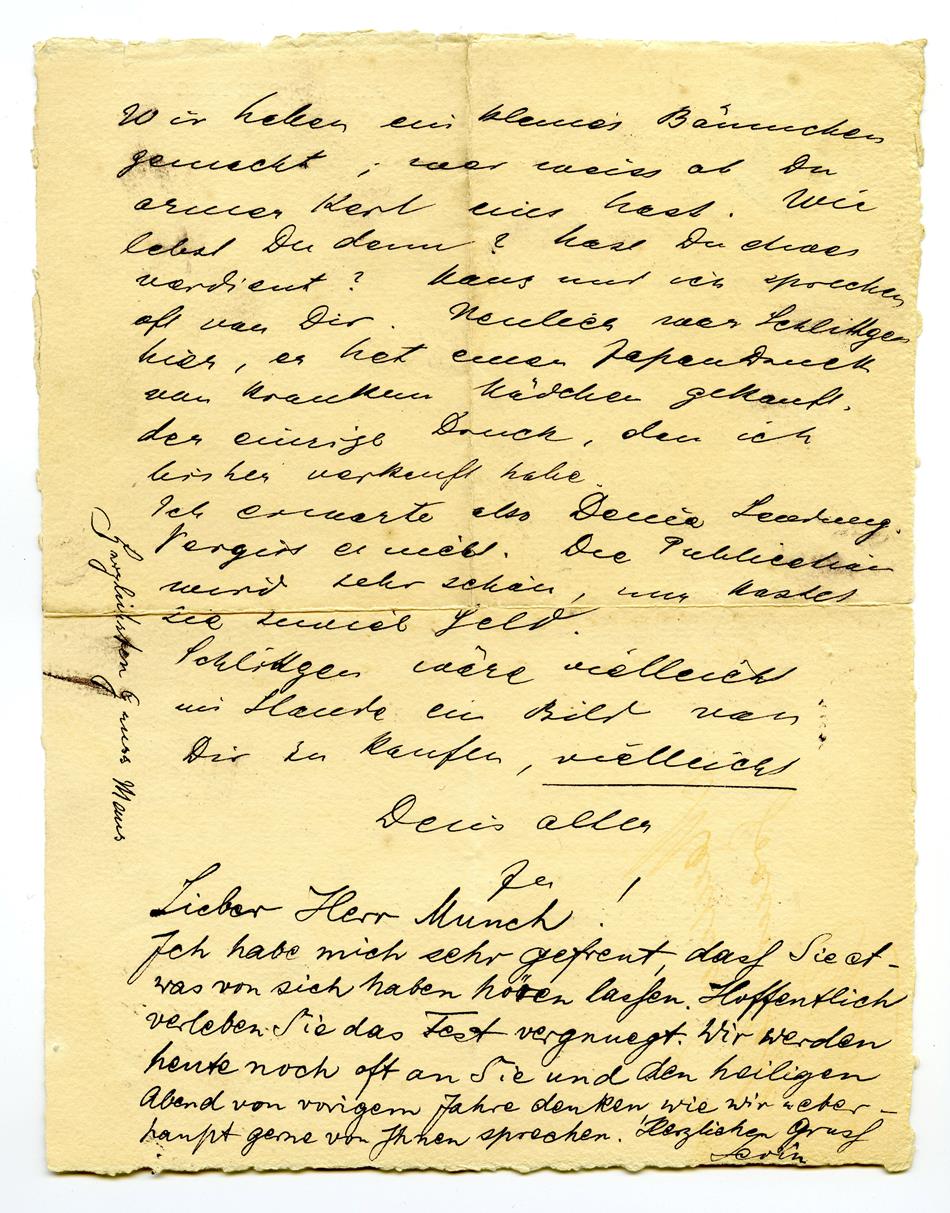 Wir haben ein kleines Bäumchen
gemacht, wer weiss ob Du
armer Kerl eins hast. Wie
lebst Du denn? hast Du etwas
verdient? Maus und ich sprechen
oft von Dir. Neulich war Schlittgen
hier, er hat einen Japandruck
vom kranken Mädchen gekauft,
der einzige Druck, den ich
bisher verkauft habe.
Ich erwarte also Deine Sendung.
Vergiss es nicht. Die Publication
wird sehr schön, nur kostet
sie zuviel Geld.
Schlittgen wäre vielleicht
im Stande ein Bild von
Dir zu kaufen, vielleicht
Dein alter
Herzlichsten Gruss Maus
Lieber Herr Munch!
Ich habe mich sehr gefreut, dass Sie et-
was von sich haben hören lassen. Hoffentlich
verleben Sie das Fest vergnuegt. Wir werden
heute noch oft an Sie und den heiligen
Abend von vorigem Jahre denken, wie wir ueber-
haupt gerne von Ihnen sprechen. Herzlichen Gruss